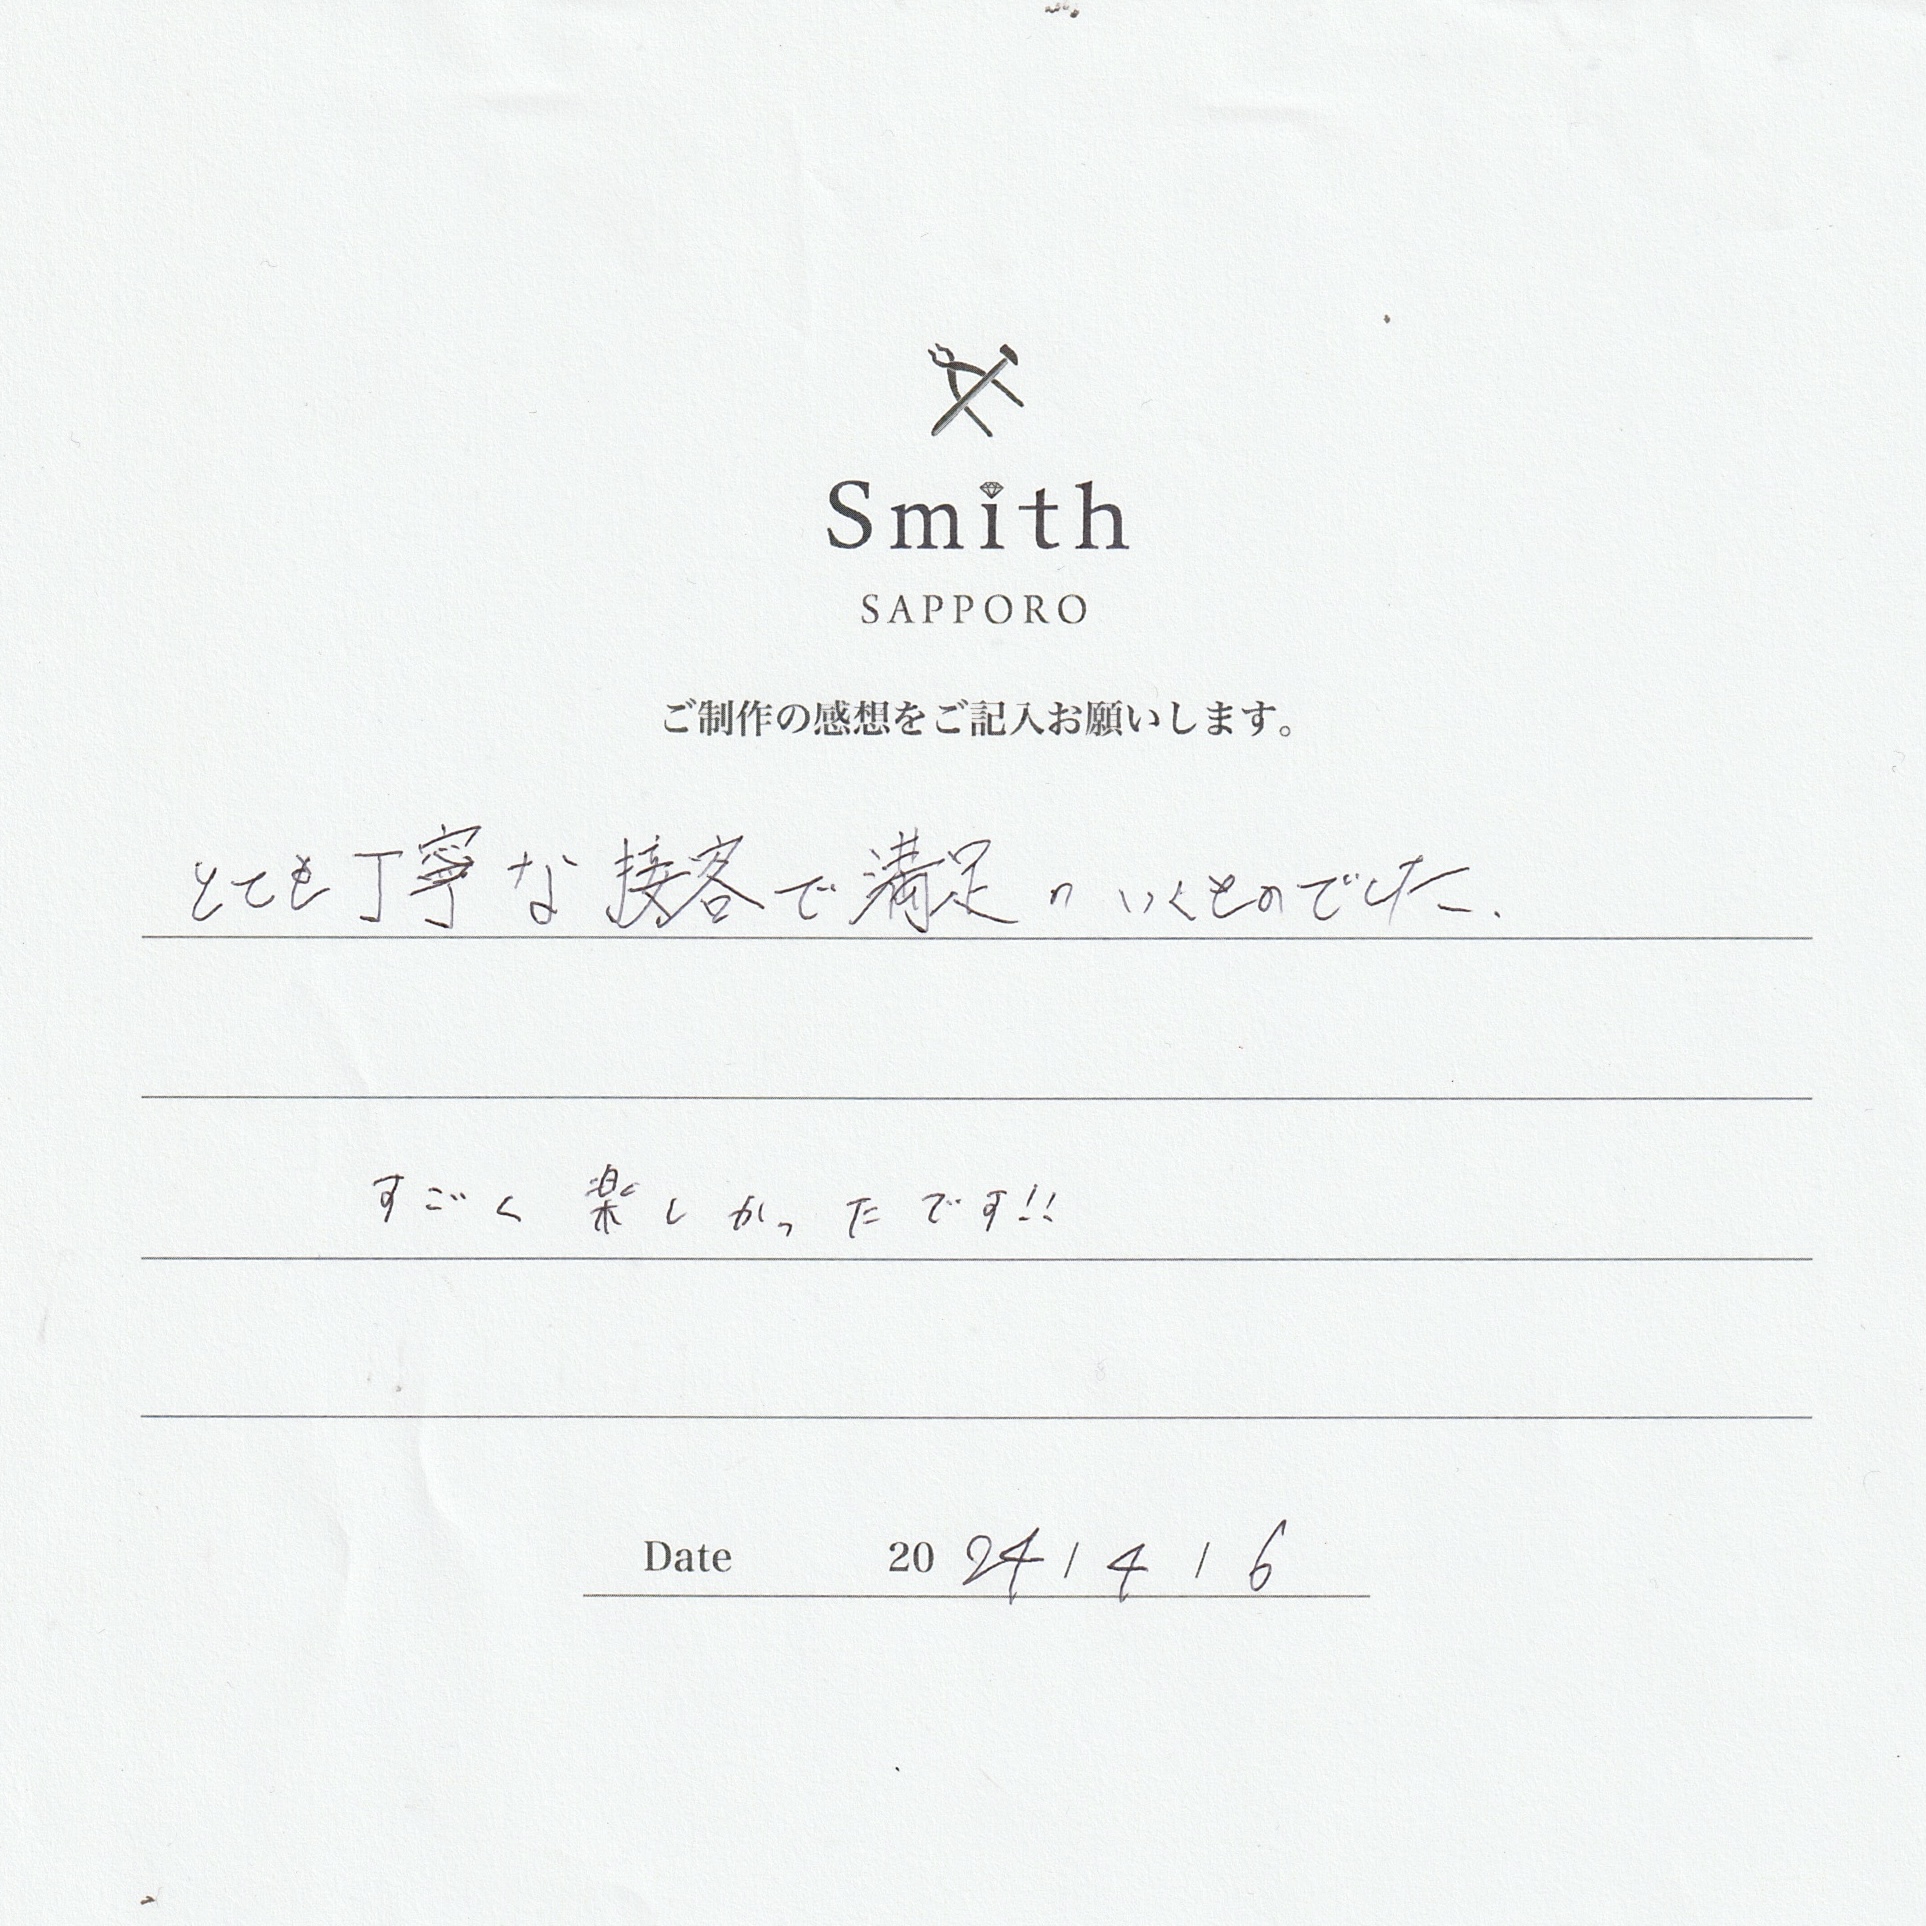 Smith
SAPPORO
ご制作の感想をご記入お願いします。
とても丁寧な接客で満足のいくものでした.
すごく楽しかったです!!
Date 2024/4/6